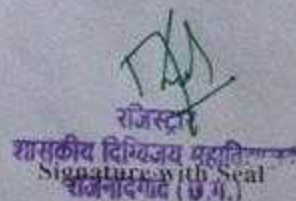 रजिस्ट्रार
शासकीय दिग्विजय महाविद्यालय
Signature with Seal
राजनांदगांव (छ.ग.)